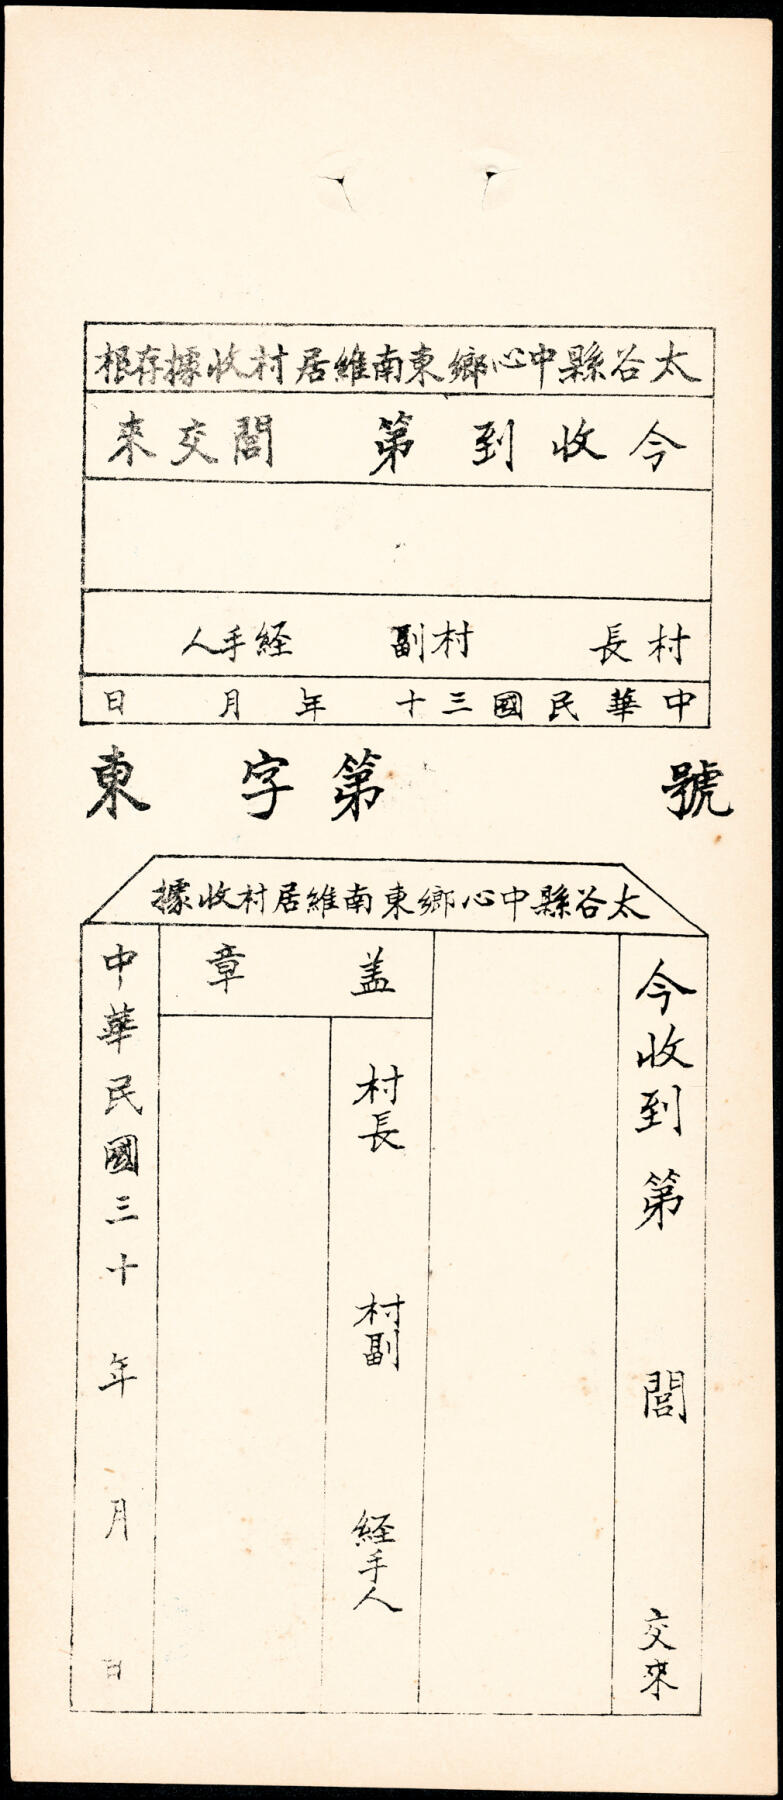 太谷縣中心鄉東南維居村收據存根
今收到第 閭交來
村長 村副 経手人
中華民國三十 年 月 日
東 字第 號
太谷縣中心鄉東南維居村收據
今收到第 閭 交來
盖章
村長 村副 経手人
中華民國三十 年 月 日